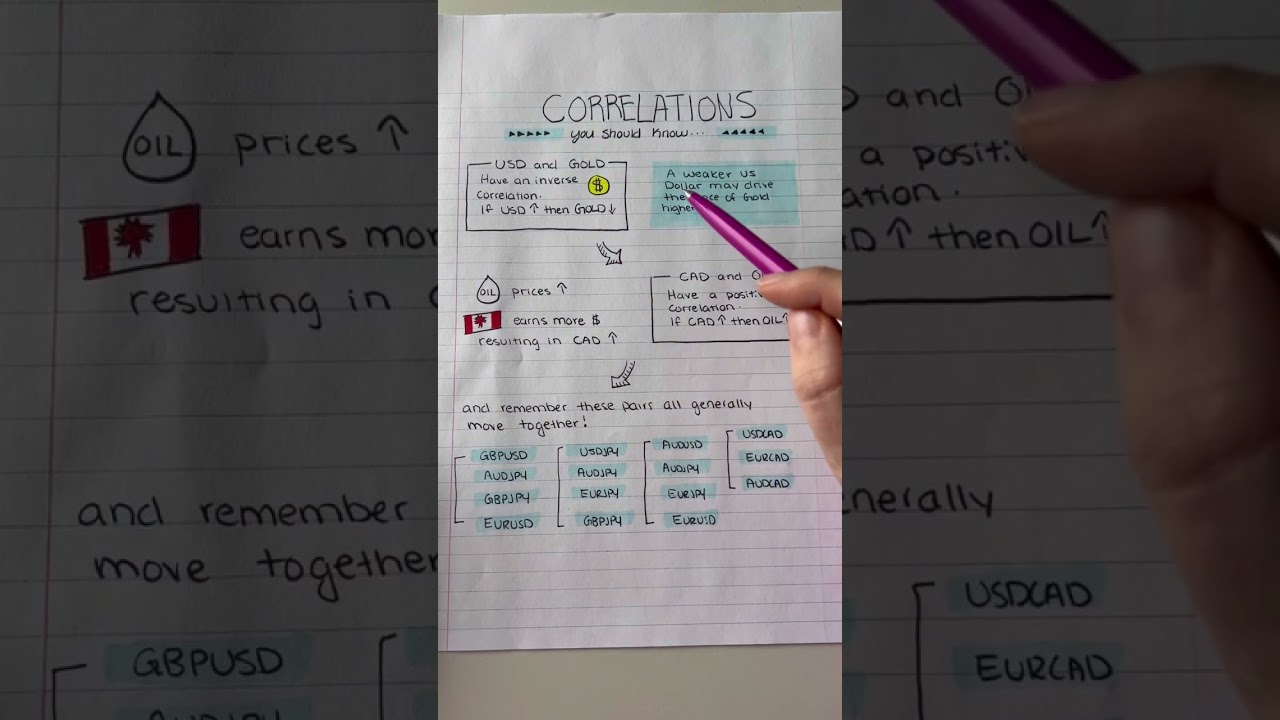 CORRELATIONS
you should know...
USD and GOLD
Have an inverse
correlation.
$
If USD ↑ then GOLD ↓
A weaker US
Dollar may drive
the of Gold
higher
OIL prices ↑
earns more $
resulting in CAD ↑
CAD and
Have a
correlation.
If CAD ↑ then OIL ↑
and remember these pairs all generally
move together!
GBPUSD
AUDJPY
GBPJPY
EURUSD
USDJPY
AUDJPY
EURJPY
GBPJPY
AUDUSD
AUDJPY
EURJPY
EURUSD
USDCAD
EURCAD
AUDCAD
OIL prices ↑
earns
resulting in
and remember
move together
GBPUSD
and
a
then OIL ↑
USDCAD
EURCAD